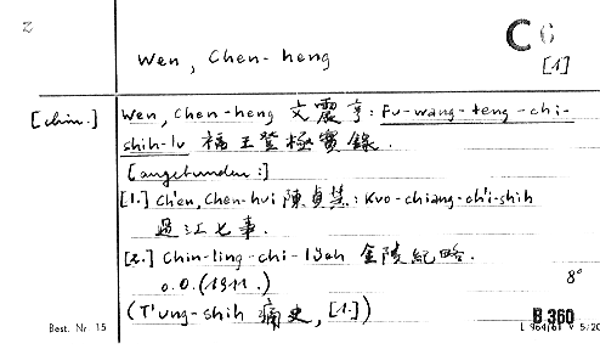 z
Wen, Chen-heng
C 6
[1]
[chin.]
Wen, Chen-heng 文震亨: Fu-wang-teng-chi-
shih-lu 福王登極實錄.
[angebunden:]
[1.] Ch'en, Chen-hui 陳貞慧: Kuo-chiang-ch'i-shih
過江七事.
[2.] Chin-ling-chi-lyah 金陵紀略.
o.O. (1911.)
8°
(T'ung-shih 痛史, [1.])
B 360
Best. Nr. 15
L 964/61 V 5/20